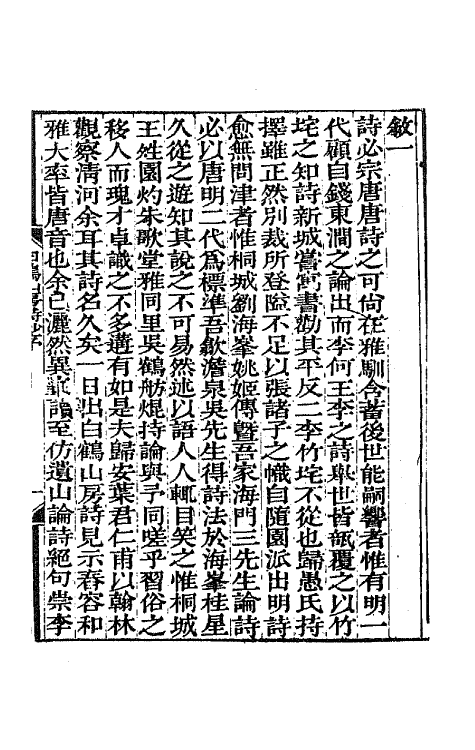 敘一
詩必宗唐唐詩之可尙在雅馴含蓄後世能嗣響者惟有明一
代顧自錢東澗之論出而李何王李之詩舉世皆瓿覆之以竹
垞之知詩新城嘗寓書勸其平反二李竹垞不從也歸愚氏持
擇雖正然別裁所登隘不足以張諸子之幟自隨園派出明詩
愈無問津者惟桐城劉海峯姚姬傳曁吾家海門三先生論詩
必以唐明二代爲標準吾歙澹泉吳先生得詩法於海峯桂星
久從之遊知其說之不可易然述以語人人輒目笑之惟桐城
王姓園灼朱歌堂雅同里吳鶴舫焜持論與予同嗟乎習俗之
移人而瑰才卓識之不多遘有如是夫歸安葉君仁甫以翰林
觀察淸河余耳其詩名久矣一日出白鶴山房詩見示舂容和
雅大率皆唐音也余已灑然異之讀至仿遺山論詩絕句崇李
白鶴山房詩鈔序
一